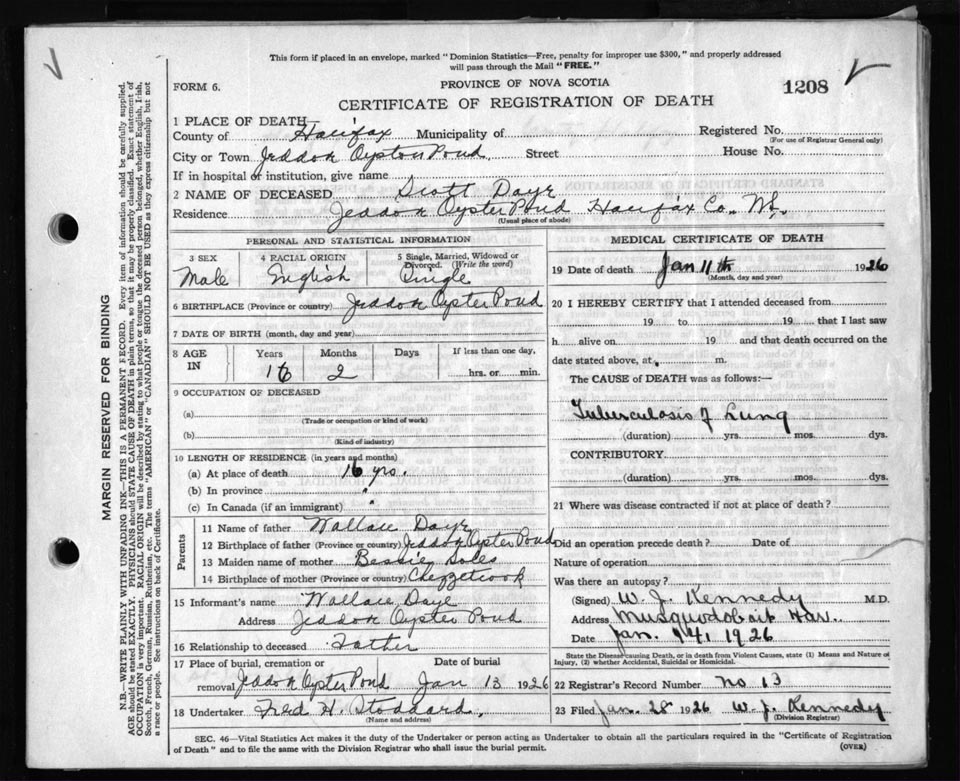 This form if placed in an envelope, marked "Dominion Statistics—Free, penalty for improper use $300," and properly addressed
will pass through the Mail "FREE."
FORM 6.
PROVINCE OF NOVA SCOTIA
1208
CERTIFICATE OF REGISTRATION OF DEATH
1 PLACE OF DEATH
County of Halifax Municipality of
Registered No.
(For use of Registrar General only)
City or Town Jeddore Oyster Pond Street House No.
If in hospital or institution, give name
2 NAME OF DECEASED Scott Daye
Residence Jeddore Oyster Pond Halifax Co. N.S.
(Usual place of abode)
PERSONAL AND STATISTICAL INFORMATION
3 SEX
Male
4 RACIAL ORIGIN
English
5 Single, Married, Widowed or
Divorced. (Write the word)
Single
6 BIRTHPLACE (Province or country) Jeddore Oyster Pond
7 DATE OF BIRTH (month, day and year)
8 AGE
IN
Years
16
Months
2
Days
If less than one day,
hrs. or min.
9 OCCUPATION OF DECEASED
(a)
(Trade or occupation or kind of work)
(b)
(Kind of industry)
10 LENGTH OF RESIDENCE (in years and months)
(a) At place of death 16 yrs.
(b) In province "
(c) In Canada (if an immigrant) "
Parents
11 Name of father Wallace Daye
12 Birthplace of father (Province or country) Jeddore Oyster Pond
13 Maiden name of mother Bessie
14 Birthplace of mother (Province or country) Chezzetcook
15 Informant's name Wallace Daye
Address Jeddore Oyster Pond
16 Relationship to deceased Father
17 Place of burial, cremation or
removal Jeddore Oyster Pond
Date of burial
Jan 13 1926
18 Undertaker Fred H. Stoddard.
(Name and address)
MEDICAL CERTIFICATE OF DEATH
19 Date of death Jan 11th 1926
(Month, day and year)
20 I HEREBY CERTIFY that I attended deceased from
19 to 19 that I last saw
h alive on 19 and that death occurred on the
date stated above, at m.
The CAUSE OF DEATH was as follows:—
Tuberculosis of Lung
(duration) yrs. mos. dys.
CONTRIBUTORY
(duration) yrs. mos. dys.
21 Where was disease contracted if not at place of death?
Did an operation precede death? Date of
Nature of operation
Was there an autopsy?
(Signed) W. J. Kennedy M.D.
Address Musquodoboit Har.
Date Jan. 14, 1926
State the Disease causing Death, or in death from Violent Causes, state (1) Means and Nature of
Injury, (2) whether Accidental, Suicidal or Homicidal.
22 Registrar's Record Number no 13
23 Filed Jan. 28 1926 W. J. Kennedy
(Division Registrar)
SEC. 46—Vital Statistics Act makes it the duty of the Undertaker or person acting as Undertaker to obtain all the particulars required in the "Certificate of Registration
of Death" and to file the same with the Division Registrar who shall issue the burial permit.
(OVER)
MARGIN RESERVED FOR BINDING
N.B.—WRITE PLAINLY WITH UNFADING INK—THIS IS A PERMANENT RECORD. Every item of information should be carefully supplied.
AGE should be stated EXACTLY. PHYSICIANS should STATE CAUSE OF DEATH in plain terms, so that it may be properly classified. Exact statement of
OCCUPATION is very important. RACIAL ORIGIN will be described by stating to what people or tongue the deceased person belonged, whether English, Irish,
Scotch, French, German, Russian, Ruthenian, etc. The terms "AMERICAN" or "CANADIAN" SHOULD NOT BE USED as they express citizenship but not
a race or people. See instructions on back of Certificate.